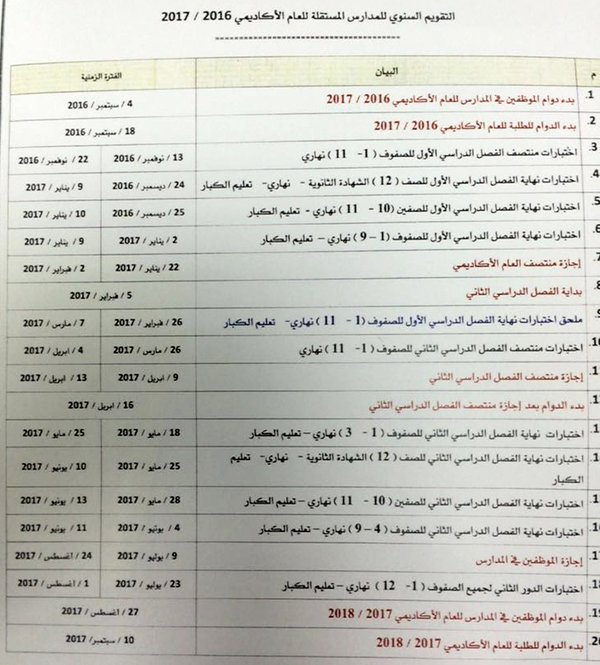 التقويم السنوي للمدارس المستقلة للعام الأكاديمي 2016 / 2017
م البيان الفترة الزمنية
.1 بدء دوام الموظفين في المدارس للعام الأكاديمي 2016 / 2017 4 / سبتمبر / 2016
.2 بدء الدوام للطلبة للعام الأكاديمي 2016 / 2017 18 / سبتمبر / 2016
.3 اختبارات منتصف الفصل الدراسي الأول للصفوف (1 - 11) نهاري 13 / نوفمبر / 2016 22 / نوفمبر / 2016
.4 اختبارات نهاية الفصل الدراسي الأول للصف (12) الشهادة الثانوية - نهاري - تعليم الكبار 24 / ديسمبر / 2016 9 / يناير / 2017
.5 اختبارات نهاية الفصل الدراسي الأول للصفين (10 - 11) نهاري - تعليم الكبار 25 / ديسمبر / 2016 10 / يناير / 2017
.6 اختبارات نهاية الفصل الدراسي الأول للصفوف (1 - 9) نهاري - تعليم الكبار 2 / يناير / 2017 9 / يناير / 2017
.7 إجازة منتصف العام الأكاديمي 22 / يناير / 2017 2 / فبراير / 2017
.8 بداية الفصل الدراسي الثاني 5 / فبراير / 2017
.9 ملحق اختبارات نهاية الفصل الدراسي الأول للصفوف (1 - 11) نهاري - تعليم الكبار 26 / فبراير / 2017 7 / مارس / 2017
.10 اختبارات منتصف الفصل الدراسي الثاني للصفوف (1 - 11) نهاري 26 / مارس / 2017 4 / ابريل / 2017
إجازة منتصف الفصل الدراسي الثاني 9 / ابريل / 2017 13 / ابريل / 2017
بدء الدوام بعد إجازة منتصف الفصل الدراسي الثاني 16 / ابريل / 2017
اختبارات نهاية الفصل الدراسي الثاني للصفوف (1 - 3) نهاري - تعليم الكبار 18 / مايو / 2017 25 / مايو / 2017
اختبارات نهاية الفصل الدراسي الثاني للصف (12) الشهادة الثانوية - نهاري - تعليم
الكبار 25 / مايو / 2017 10 / يونيو / 2017
اختبارات نهاية الفصل الدراسي الثاني للصفين (10 - 11) نهاري - تعليم الكبار 28 / مايو / 2017 13 / يونيو / 2017
اختبارات نهاية الفصل الدراسي الثاني للصفوف (4 - 9) نهاري - تعليم الكبار 4 / يونيو / 2017 11 / يونيو / 2017
إجازة الموظفين في المدارس 9 / يوليو / 2017 24 / أغسطس / 2017
اختبارات الدور الثاني لجميع الصفوف (1 - 12) نهاري - تعليم الكبار 23 / يوليو / 2017 1 / أغسطس / 2017
بدء دوام الموظفين في المدارس للعام الأكاديمي 2017 / 2018 27 / أغسطس / 2017
بدء الدوام للطلبة للعام الأكاديمي 2017 / 2018 10 / سبتمبر / 2017